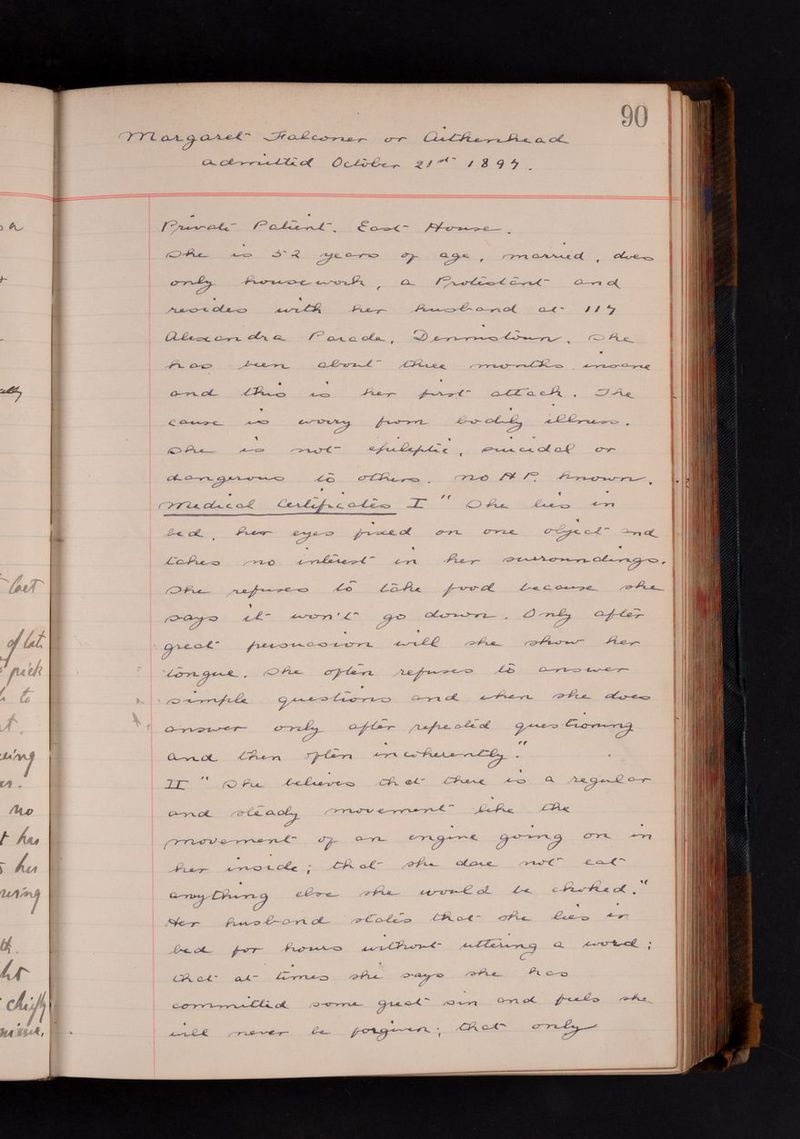 90
Margaret Falconer or Aitkenhead
admitted October 21st 1897.
Private Patient. East House.
She is 52 years of age, married, does
only housework, a Protestant and
resides with her husband at 117
Alexandra Parade, Dennistoun. She
has been about three months insane
and this is her first attack. The
cause is worry from bodily illness.
She is not epileptic, suicidal or
dangerous to others. no H.P. known.
Medical Certificates I " She lies in
bed, her eyes fixed on one object and
takes no interest in her surroundings.
She refuses to take food because she
says it won't go down. Only after
great persuasion will she show her
tongue. She often refuses to answer
simple questions and when she does
answer only after repeated questioning
and then often incoherently."
II " She believes that there is a regular
and steady movement like the
movement of an engine going on in
her inside; that she dare not eat
anything else she would be choked."
Her husband states that she lies in
bed for hours without uttering a word;
that at times she says she has
committed some great sin and feels she
will never be forgiven; that only
of late
pick
to
no
has
her
chiefly